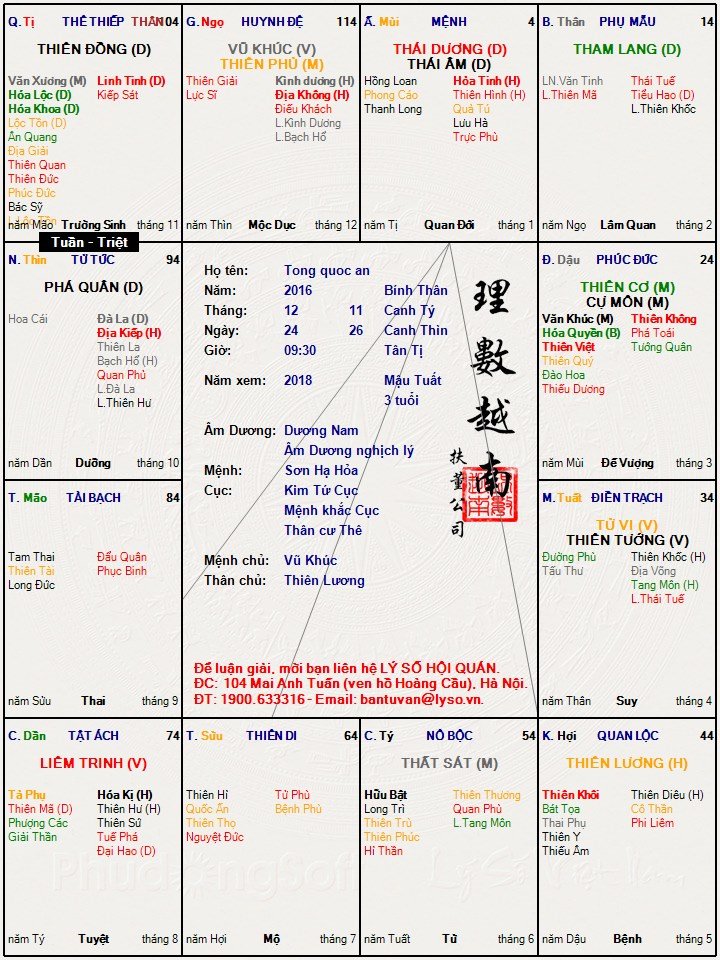 Q. Tị THÊ THIẾP THÂN 104
THIÊN ĐỒNG (D)
Văn Xương (M) Linh Tinh (D)
Hóa Lộc (D) Kiếp Sát
Hóa Khoa (D)
Lộc Tồn (D)
Ân Quang
Địa Giải
Thiên Quan
Thiên Đức
Phúc Đức
Bác Sỹ
L.Lộc Tồn
năm Mão Trường Sinh tháng 11
G. Ngọ HUYNH ĐỆ 114
VŨ KHÚC (V)
THIÊN PHỦ (M)
Thiên Giải Kình dương (H)
Lực Sĩ Địa Không (H)
Điếu Khách
L.Kình Dương
L.Bạch Hổ
năm Thìn Mộc Dục tháng 12
Ấ. Mùi MỆNH 4
THÁI DƯƠNG (D)
THÁI ÂM (D)
Hồng Loan Hỏa Tinh (H)
Phong Cáo Thiên Hình (H)
Thanh Long Quả Tú
Lưu Hà
Trực Phù
năm Tị Quan Đới tháng 1
B. Thân PHỤ MẪU 14
THAM LANG (D)
LN.Văn Tinh Thái Tuế
L.Thiên Mã Tiểu Hao (D)
L.Thiên Khốc
năm Ngọ Lâm Quan tháng 2
Tuần - Triệt
N. Thìn TỬ TỨC 94
PHÁ QUÂN (D)
Hoa Cái Đà La (D)
Địa Kiếp (H)
Thiên La
Bạch Hổ (H)
Quan Phủ
L.Đà La
L.Thiên Hư
năm Dần Dưỡng tháng 10
Họ tên: Tong quoc an
Năm: 2016 Bính Thân
Tháng: 12 11 Canh Tý
Ngày: 24 26 Canh Thìn
Giờ: 09:30 Tân Tị
Năm xem: 2018 Mậu Tuất
3 tuổi
Âm Dương: Dương Nam
Âm Dương nghịch lý
Mệnh: Sơn Hạ Hỏa
Cục: Kim Tứ Cục
Mệnh khắc Cục
Thân cư Thê
Mệnh chủ: Vũ Khúc
Thân chủ: Thiên Lương
理數越南
扶董公司
Để luận giải, mời bạn liên hệ LÝ SỐ HỘI QUÁN.
ĐC: 104 Mai Anh Tuấn (ven hồ Hoàng Cầu), Hà Nội.
ĐT: 1900.633316 - Email: bantuvan@lyso.vn.
Đ. Dậu PHÚC ĐỨC 24
THIÊN CƠ (M)
CỰ MÔN (M)
Văn Khúc (M) Thiên Không
Hóa Quyền (B) Phá Toái
Thiên Việt Tướng Quân
Thiên Quý
Đào Hoa
Thiếu Dương
năm Mùi Đế Vượng tháng 3
T. Mão TÀI BẠCH 84
Tam Thai Đẩu Quân
Thiên Tài Phục Binh
Long Đức
năm Sửu Thai tháng 9
M. Tuất ĐIỀN TRẠCH 34
TỬ VI (V)
THIÊN TƯỚNG (V)
Đường Phù Thiên Khốc (H)
Tấu Thư Địa Võng
Tang Môn (H)
L.Thái Tuế
năm Thân Suy tháng 4
C. Dần TẬT ÁCH 74
LIÊM TRINH (V)
Tả Phụ Hóa Kị (H)
Thiên Mã (D) Thiên Hư (H)
Phượng Các Thiên Sứ
Giải Thần Tuế Phá
Đại Hao (D)
năm Tý Tuyệt tháng 8
T. Sửu THIÊN DI 64
Thiên Hỉ Tử Phù
Quốc Ấn Bệnh Phù
Thiên Thọ
Nguyệt Đức
năm Hợi Mộ tháng 7
C. Tý NÔ BỘC 54
THẤT SÁT (M)
Hữu Bật Thiên Thương
Long Trì Quan Phù
Thiên Trù L.Tang Môn
Thiên Phúc
Hỉ Thần
năm Tuất Tử tháng 6
K. Hợi QUAN LỘC 44
THIÊN LƯƠNG (H)
Thiên Khôi Thiên Diêu (H)
Bát Tọa Cô Thần
Thai Phụ Phi Liêm
Thiên Y
Thiếu Âm
năm Dậu Bệnh tháng 5